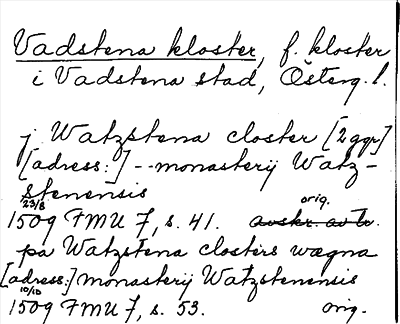 Vadstena kloster, f. kloster
i Vadstena stad, Österg. l.
j Watzstena closter [2 ggr]
[adress:] -- monasterij Watz-
stenensis
23/8 orig.
1509 FMU 7, s. 41. avskr. av tr.
pa Watzstena closters wægna
[adress:] monasterij Watzstenensis
10/10
1509 FMU 7, s. 53. orig.